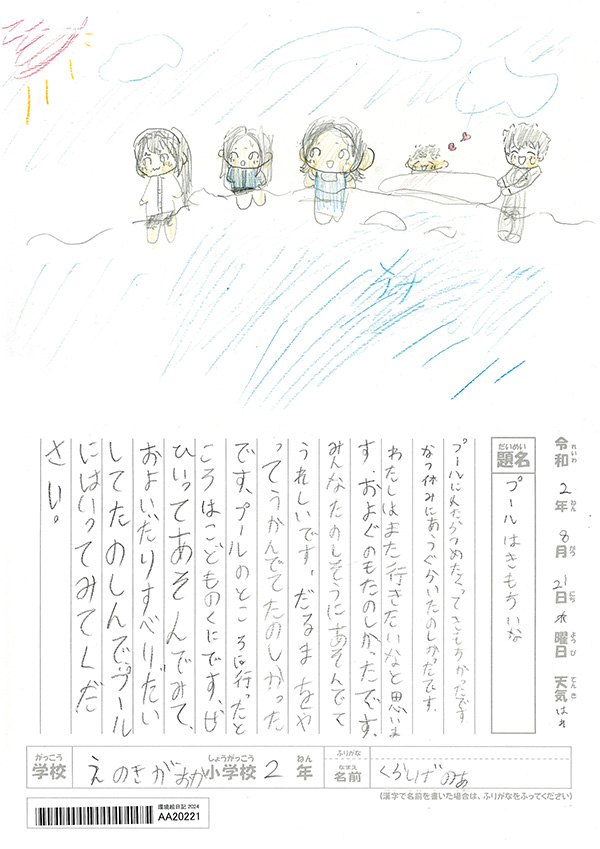 令和2年8月21日水曜日 天気はれ
れいわ ねん がつ にち ようび てんき
だいめい
題名
プールはきもちいな
プールに入たらつめたくってきもちかったです
なつ休みにあうぐらいたのしかたです。
わたしはまた行きたいなと思いま
す。およぐのもたのしかったです。
みんなたのしそうにあそんでて
うれしいです。だるまをや
ってうかんでてたのしかった
です。プールのところに行ったと
ころはこどものくにです。ぜ
ひいってあそんでみて、
およいだりすべりだい
してたのしんで、プール
にはいってみてくだ
さい。
がっこう しょうがっこう ねん
学校 えのきがおか小学校 2年
ふりがな
なまえ
名前 くらしげ のあ
(漢字で名前を書いた場合は、ふりがなをふってください)
環境絵日記 2024
AA20221